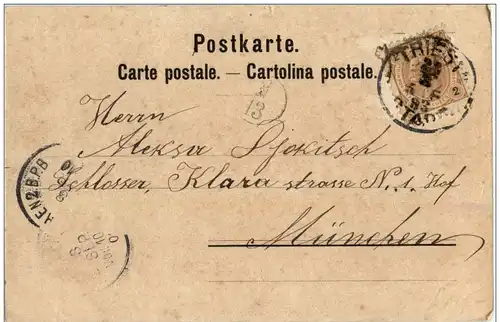 Postkarte.
Carte postale. — Cartolina postale.
TRIEST
2
13
Herrn
Aleksa Djokitsch
Schlosser, Klara strasse N. 1. Hof
München